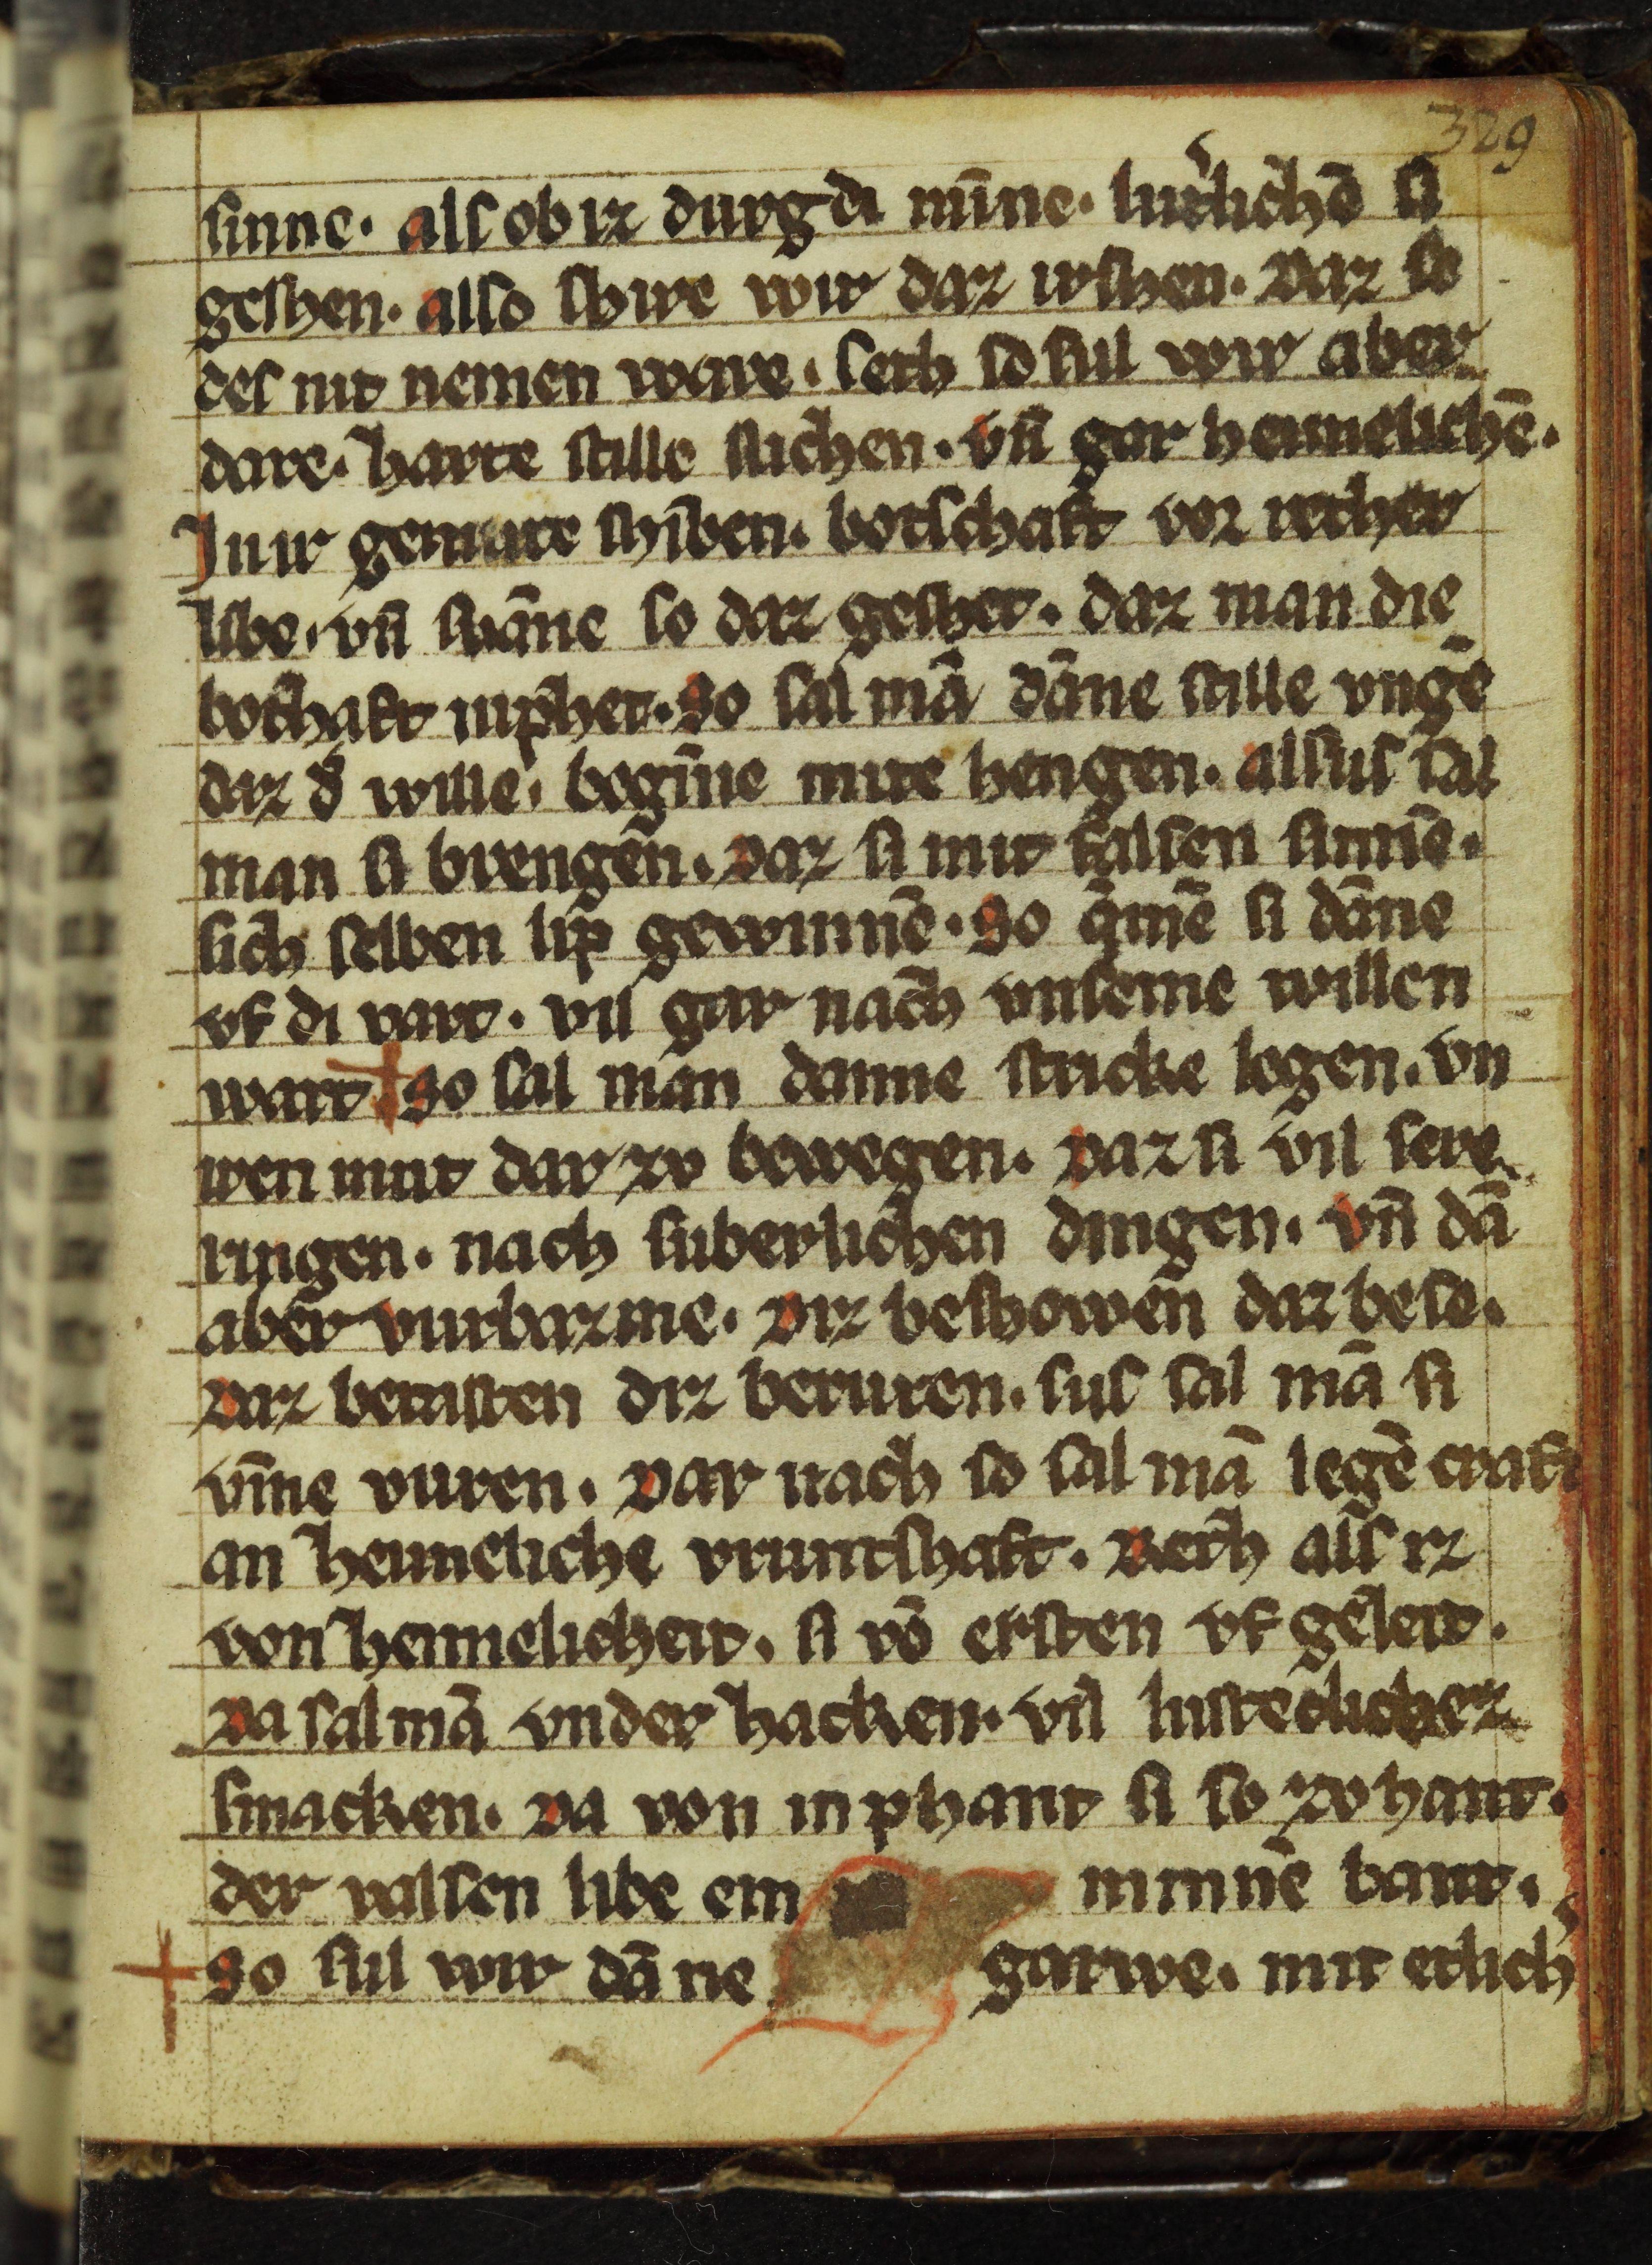 329
sinne. als ob iz durg di mīne. lutˀlichē si
geshen. also shire wir daz irshen. Daz so
des nit nemen ware. seth so sul wir aber
dare. harte stille slichen. vn̄ gar heimelichē.
In ir gemute shiben. botschaft vor rether
libe. vn̄ swāne so daz geshet. daz man die
bothaft inphet. So sal mā dāne stille vngē
diz dˀ wille. begīne mite hengen. alsus sal
man si brengen. Daz si mit falsen sinnē.
sich selben lip gewinnē. So qͣmē si dāne
vf di vart. vil gar nach vnseme willen
wart So sal man danne stricke legen. vn
iren mut dar zv bewegen. Daz si vil sere
ringen. nach suberlichen dingen. vn̄ dā
aber vurbaz me. Diz beshowen daz bese.
Daz betasten diz beruren. sus sal mā si
vm̄e vuren. Dar nach so sal mā legē craft
an heimeliche vruntshaft. Reth als iz
von heimelicheit. si vō ersten vf geleit.
Da sal mā vnder hacken. vil lusteclichez
smacken. Da von inphant si so zv hant.
der valsen libe ein minnē bant.
So sul wir dāne garwe. mit etlichˀ